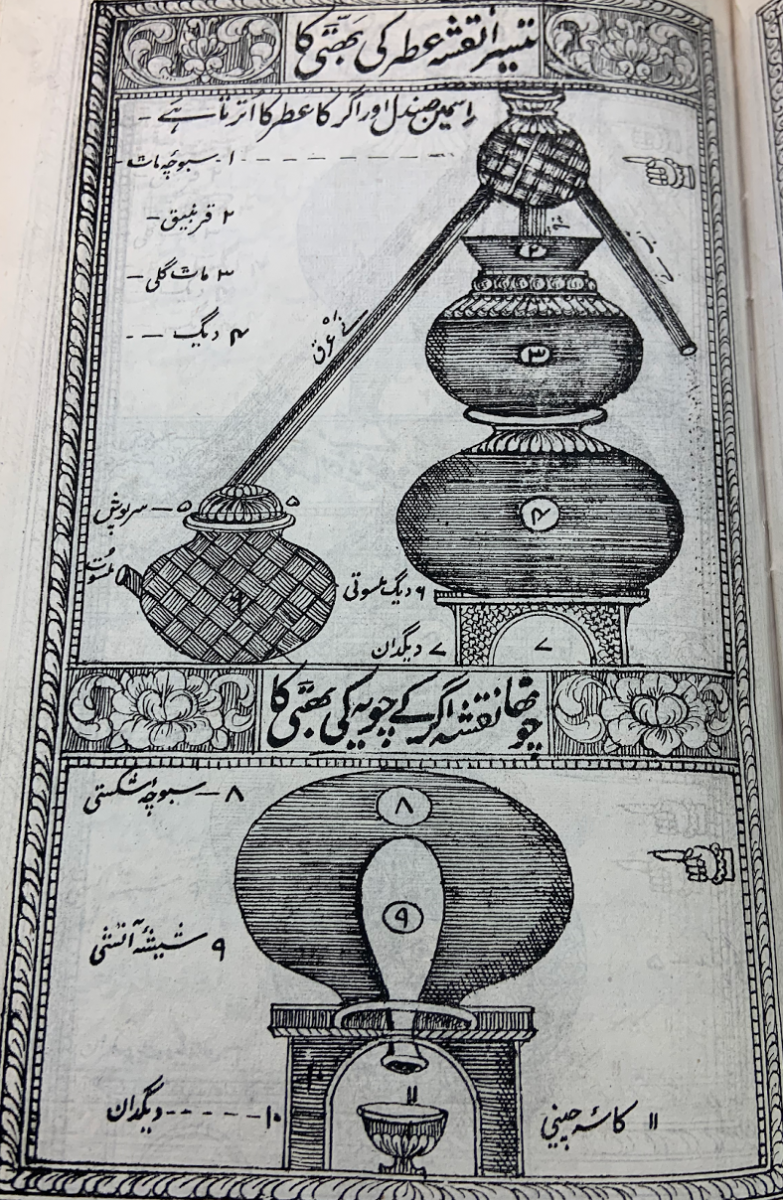 تیسرا نقشہ عطر کی بھٹی کا
اسمین صندل اور اگر کا عطر کا اُترتا ہے -
۱- سبوچہ مات
۲ قرنبیق -
۳ مات گلی -
۴ دیگ
۲
عرق
۳
۴
۵ - سرپوش
۵
۶ دیگ
۷ دیگدان
۷
چوتھا نقشہ اگر کے چویہ کی بھٹی کا
۸ - سبوچہ اشکستی
۸
۹ شیشۂ آتشی
۹
۱۰ دیگدان
۱۱
۱۱ کاسۂ چینی